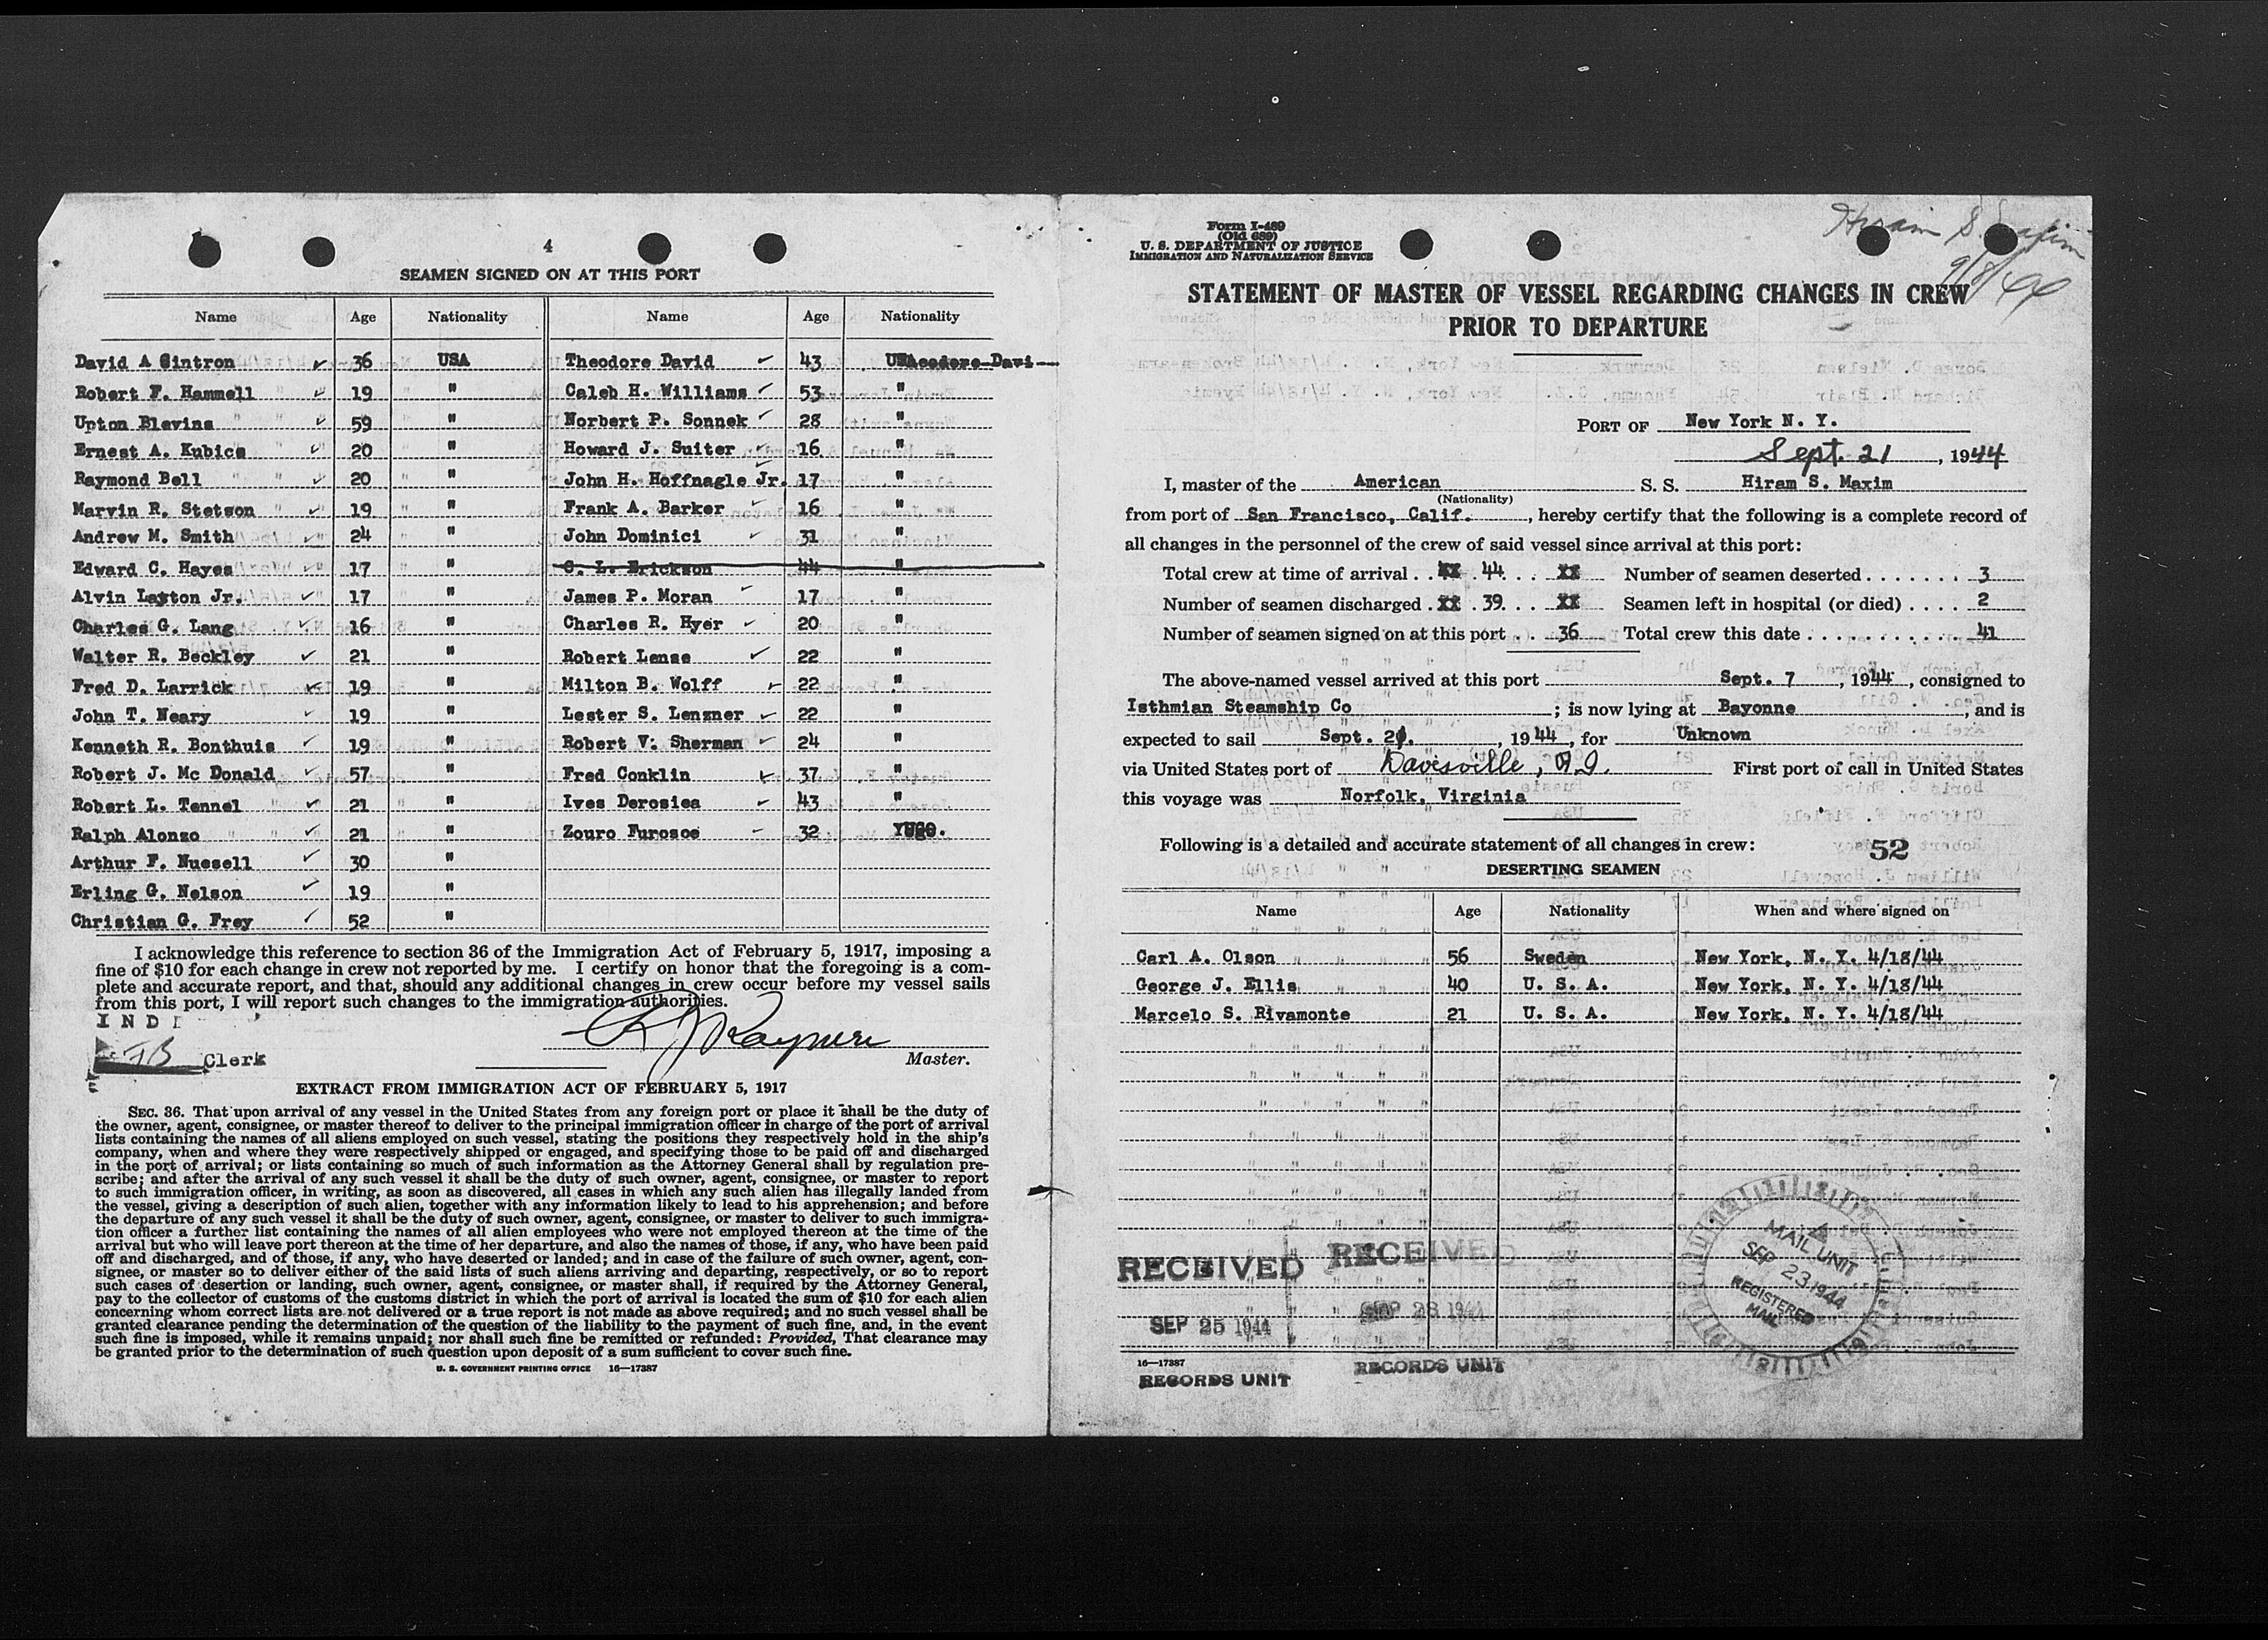 4
SEAMEN SIGNED ON AT THIS PORT
Name Age Nationality Name Age Nationality
David A Cintron ✓ 36 USA Theodore David ✓ 43
Robert F. Hammell ✓ 19 " Caleb H. Williams ✓ 53 "
Upton Blevins ✓ 59 " Norbert P. Sonnek ✓ 28 "
Ernest A. Kubica ✓ 20 " Howard J. Suiter ✓ 16 "
Raymond Bell ✓ 20 " John H. Hoffnagle Jr. ✓ 17 "
Marvin R. Stetson ✓ 19 " Frank A. Barker ✓ 16 "
Andrew M. Smith ✓ 24 " John Dominici ✓ 31 "
Edward C. Hayes ✓ 17 " C. L. Erickson 44 "
Alvin Layton Jr. ✓ 17 " James P. Moran ✓ 17 "
Charles G. Lang ✓ 16 " Charles R. Hyer ✓ 20 "
Walter R. Beckley ✓ 21 " Robert Lense ✓ 22 "
Fred D. Larrick ✓ 19 " Milton B. Wolff ✓ 22 "
John T. Neary ✓ 19 " Lester S. Lenzner ✓ 22 "
Kenneth R. Bonthuis ✓ 19 " Robert V. Sherman ✓ 24 "
Robert J. Mc Donald ✓ 57 " Fred Conklin ✓ 37 "
Robert L. Tennel ✓ 21 " Ives Derosiea ✓ 43 "
Ralph Alonzo ✓ 21 " Zouro Furosoe ✓ 32 YUGO.
Arthur F. Nuesell ✓ 30 "
Erling G. Nelson ✓ 19 "
Christian G. Frey ✓ 52 "
I acknowledge this reference to section 36 of the Immigration Act of February 5, 1917, imposing a
fine of $10 for each change in crew not reported by me. I certify on honor that the foregoing is a com-
plete and accurate report, and that, should any additional changes in crew occur before my vessel sails
from this port, I will report such changes to the immigration authorities.
I N D
Clerk
Master.
EXTRACT FROM IMMIGRATION ACT OF FEBRUARY 5, 1917
SEC. 36. That upon arrival of any vessel in the United States from any foreign port or place it shall be the duty of
the owner, agent, consignee, or master thereof to deliver to the principal immigration officer in charge of the port of arrival
lists containing the names of all aliens employed on such vessel, stating the positions they respectively hold in the ship's
company, when and where they were respectively shipped or engaged, and specifying those to be paid off and discharged
in the port of arrival; or lists containing so much of such information as the Attorney General shall by regulation pre-
scribe; and after the arrival of any such vessel it shall be the duty of such owner, agent, consignee, or master to report
to such immigration officer, in writing, as soon as discovered, all cases in which any such alien has illegally landed from
the vessel, giving a description of such alien, together with any information likely to lead to his apprehension; and before
the departure of any such vessel it shall be the duty of such owner, agent, consignee, or master to deliver to such immigra-
tion officer a further list containing the names of all alien employees who were not employed thereon at the time of the
arrival but who will leave port thereon at the time of her departure, and also the names of those, if any, who have been paid
off and discharged, and of those, if any, who have deserted or landed; and in case of the failure of such owner, agent, con-
signee, or master so to deliver either of the said lists of such aliens arriving and departing, respectively, or so to report
such cases of desertion or landing, such owner, agent, consignee, or master shall, if required by the Attorney General,
pay to the collector of customs of the customs district in which the port of arrival is located the sum of $10 for each alien
concerning whom correct lists are not delivered or a true report is not made as above required; and no such vessel shall be
granted clearance pending the determination of the question of the liability to the payment of such fine, and, in the event
such fine is imposed, while it remains unpaid; nor shall such fine be remitted or refunded: Provided, That clearance may
be granted prior to the determination of such question upon deposit of a sum sufficient to cover such fine.
U. S. GOVERNMENT PRINTING OFFICE 16—17387
Form I-489
(Old 689)
U. S. DEPARTMENT OF JUSTICE
IMMIGRATION AND NATURALIZATION SERVICE
Hiram S. Maxim
9/8/44
STATEMENT OF MASTER OF VESSEL REGARDING CHANGES IN CREW
PRIOR TO DEPARTURE
PORT OF New York N. Y.
Sept. 21, 1944
I, master of the American S. S. Hiram S. Maxim
(Nationality)
from port of San Francisco, Calif., hereby certify that the following is a complete record of
all changes in the personnel of the crew of said vessel since arrival at this port:
Total crew at time of arrival . . xx 44 xx Number of seamen deserted . . . . . . . 3
Number of seamen discharged . xx 39 xx Seamen left in hospital (or died) . . . . 2
Number of seamen signed on at this port . . 36 Total crew this date . . . . . . . . . . . . 41
The above-named vessel arrived at this port Sept. 7, 1944, consigned to
Isthmian Steamship Co; is now lying at Bayonne, and is
expected to sail Sept. 21., 1944, for Unknown
via United States port of Davisville, R.I. First port of call in United States
this voyage was Norfolk, Virginia
Following is a detailed and accurate statement of all changes in crew: 52
DESERTING SEAMEN
Name Age Nationality When and where signed on
Carl A. Olson 56 Sweden New York, N. Y. 4/18/44
George J. Ellis 40 U. S. A. New York, N. Y. 4/18/44
Marcelo S. Rivamonte 21 U. S. A. New York, N. Y. 4/18/44
RECEIVED RECEIVED
SEP 25 1944 SEP 23 1944
MAIL UNIT
SEP 23 1944
REGISTERED
MAIL
16—17387
RECORDS UNIT RECORDS UNIT